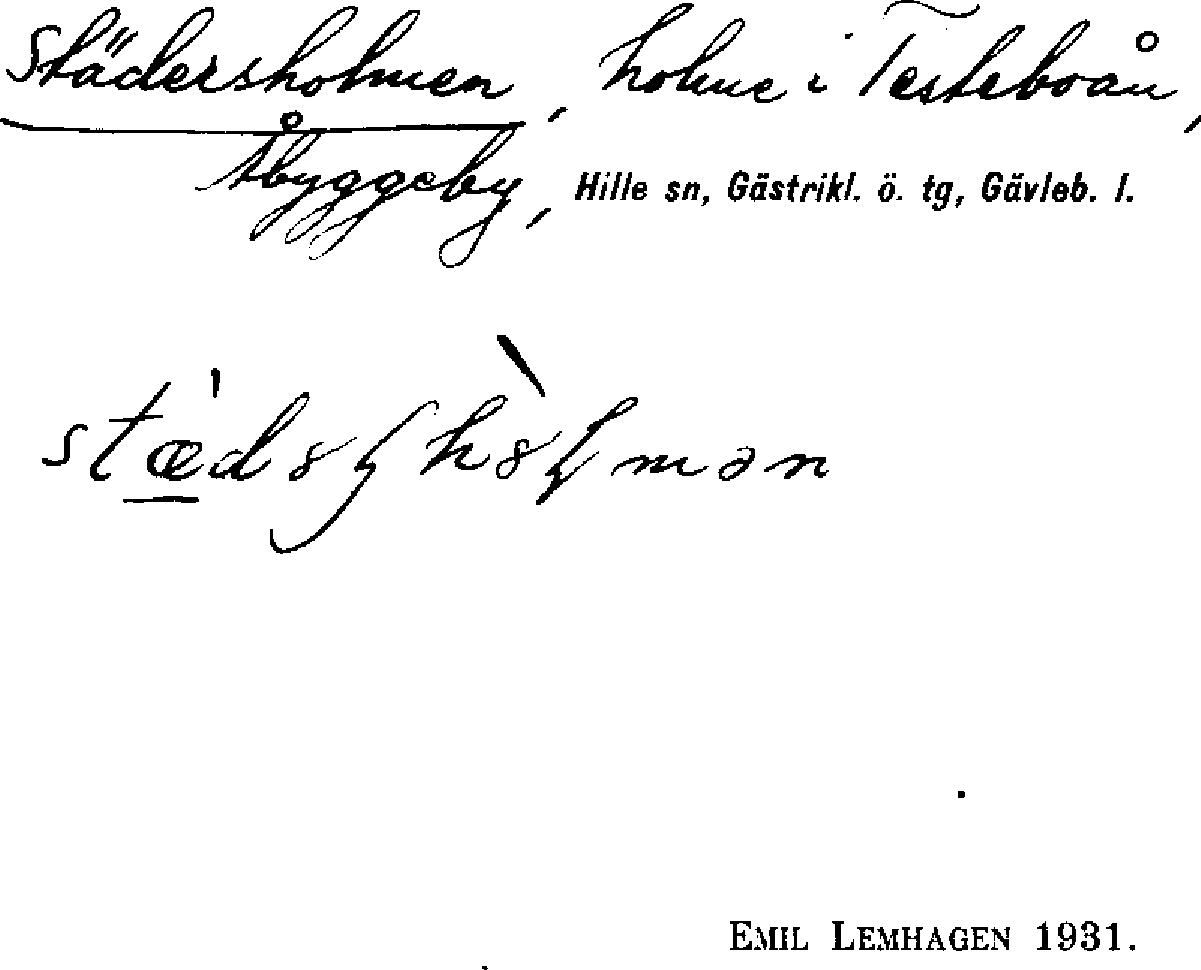 Städersholmen, holme i Testeboån,
Åbyggeby, Hille sn, Gästrikl. ö. tg, Gävleb. l.
EMIL LEMHAGEN 1931.